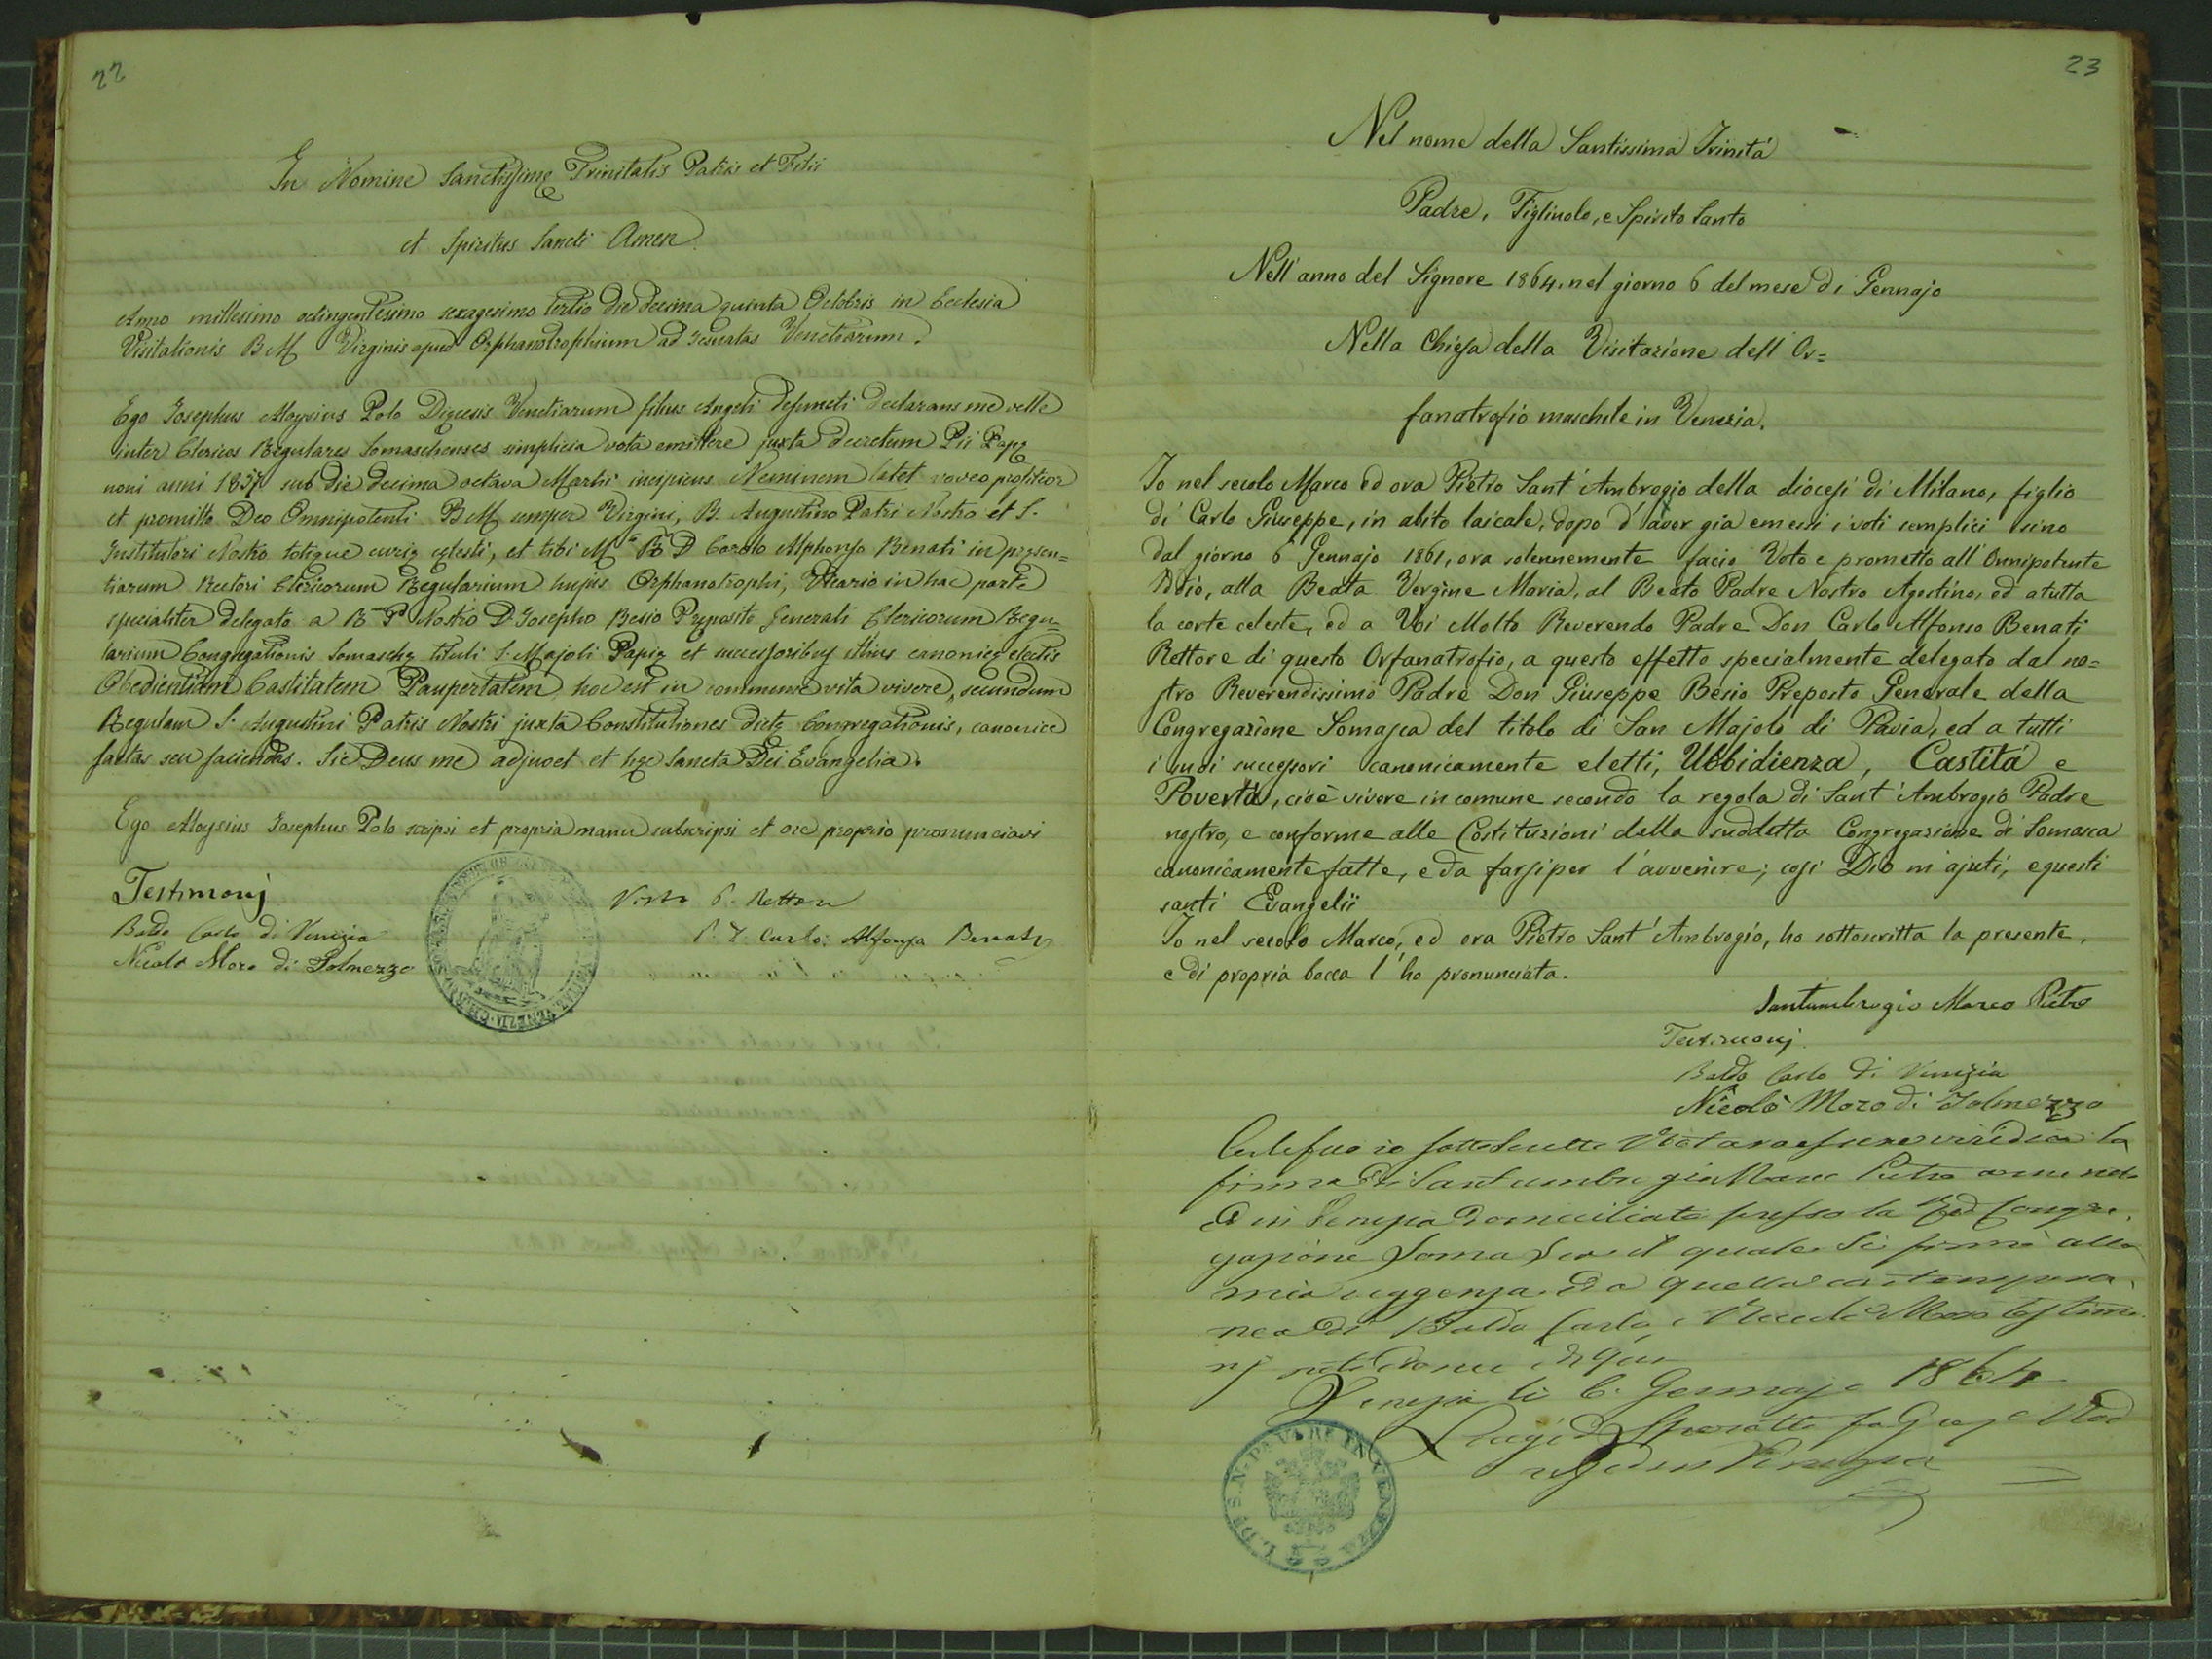 22
In Nomine Sanctissimę Trinitatis Patris et Filii
et Spiritus Sancti Amen.
Anno millesimo octingentesimo sexagesimo tertio die decima quinta Octobris in Ecclesia
Visitationis B M Virginis apud Orphanotrophium ad Jesuatas Venetiarum.
Ego Josephus Aloysius Polo Diœcesis Venetiarum filius Angeli defuncti declarans me velle
inter Clericos Regulares Somaschenses simplicia vota emittere juxta decretum Pii Papę
noni anni 1857 sub die decima octava Martii incipiens Neminem latet voveo profiteor
et promitto Deo Omnipotenti B M semper Virgini, B. Augustino Patri Nostro et S.
Institutori Nostro totique curię cęlesti, et tibi M R D Carolo Alphonso Benati in pręsen=
tiarum Rectori Clericorum Regularium hujus Orphanotrophi, Vicario in hac parte
specialiter delegato a R P Nostro D. Josepho Besio Pręposito Generali Clericorum Regu=
larium Congregationis Somaschę tituli S. Majoli Papię et successoribus illius canonice electis
Obedientiam Castitatem Paupertatem, hoc est in commune vita vivere, secundum
Regulam S. Augustini Patris Nostri juxta Constitutiones dictę Congregationis, canonice
factas seu faciendas. Sic Deus me adjuvet et hęc Sancta Dei Evangelia.
Ego Aloysius Josephus Polo scripsi et propria manu subscripsi et ore proprio pronunciavi
Testimonj
Baldo Carlo di Venezia
Nicolò Moro di Tolmezzo
Visto P. Rettore
P. D. Carlo Alfonso Benati
23
Nel nome della Santissima Trinitá
Padre, Figliuolo, e Spirito Santo
Nell'anno del Signore 1864. nel giorno 6 del mese di Gennajo
Nella Chiesa della Visitazione dell'Or=
fanatrofio maschile in Venezia.
Io nel secolo Marco ed ora Pietro Sant'Ambrogio della diocesi di Milano, figlio
di Carlo Giuseppe, in abito laicale, dopo d'aver gia emessi i voti semplici sino
dal giorno 6 Gennajo 1861, ora solennemente facio Voto e prometto all'Onnipotente
Iddio, alla Beata Vergine Maria, al Beato Padre Nostro Agostino, ed a tutta
la corte celeste, ed a Voi Molto Reverendo Padre Don Carlo Alfonso Benati
Rettore di questo Orfanatrofio, a questo effetto specialmente delegato dal no=
stro Reverendissimo Padre Don Giuseppe Besio Preposto Generale della
Congregazione Somasca del titolo di San Majolo di Pavia, ed a tutti
i suoi successori canonicamente eletti, Ubbidienza, Castitá e
Povertá, cioè vivere in comune secondo la regola di Sant'Ambrogio Padre
nostro, e conforme alle Costituzioni della suddetta Congregazione di Somasca
canonicamente fatte, e da farsi per l'avvenire; cosi Dio m'ajuti, e questi
santi Evangelii
Io nel secolo Marco, ed ora Pietro Sant'Ambrogio, ho sottoscritta la presente,
e di propria bocca l'ho pronunciata.
Santambrogio Marco Pietro
Testimonj
Baldo Carlo di Venezia
Nicolò Moro di Tolmezzo
Certifico io sottoscritto Notaro essere veridica la
firma di Santambrogio Marco Pietro
di Venezia domiciliato presso la Congre
gazione Somasca il quale si firmò alla
mia da quella contempora
nea di Baldo Carlo, e Nicolò Moro testimo
nj
Venezia li 6. Gennajo 1864
Luigi
Venezia
VENEZIA